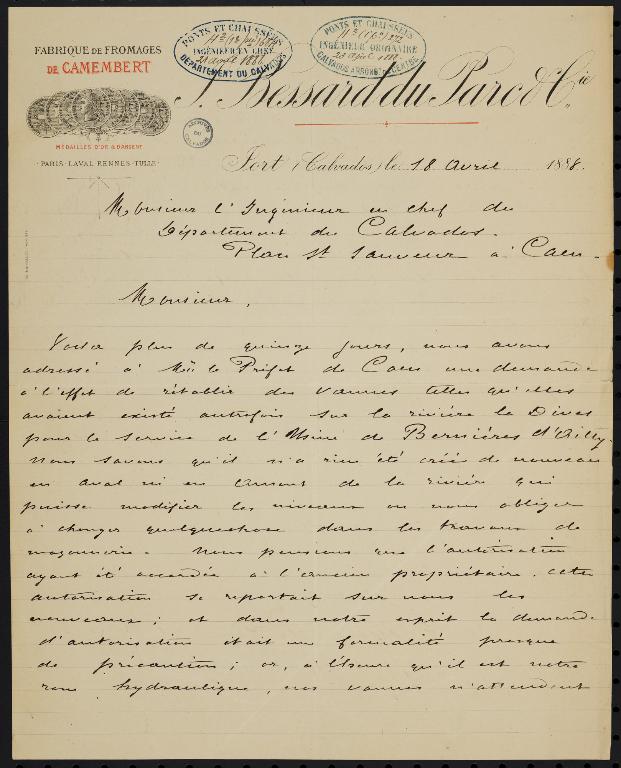 FABRIQUE DE FROMAGES
DE CAMEMBERT
MÉDAILLES D'OR & D'ARGENT
PARIS-LAVAL-RENNES-TULLE
PONTS ET CHAUSSÉES
INGÉNIEUR EN CHEF
21 avril 1888
DÉPARTEMENT DU CALVADOS
PONTS ET CHAUSSÉES
INGÉNIEUR ORDINAIRE
23 avril 1888
CALVADOS
ARCHIVES DU CALVADOS
J. Bessard du Parc & Cie
Fort (Calvados), le 18 Avril 1888.
Monsieur l'Ingénieur en chef du
Département du Calvados.
Place St Sauveur à Caen.
Monsieur,
Voilà plus de quinze jours, nous avons
adressé à Mr le Préfet de Caen une demande
à l'effet de rétablir des vannes telles qu'elles
avaient existé autrefois sur la rivière la Dives
pour le service de l'Usine de Bernières d'Ailly.
Nous savons qu'il n'a rien été créé de nouveau
en aval ni en amont de la rivière qui
puisse modifier les niveaux ou nous obliger
à changer quelquechose dans les travaux de
maçonnerie. Nous pensions que l'autorisation
ayant été accordée à l'ancien propriétaire, cette
autorisation se reportait sur nous les
nouveaux; et dans notre esprit la demande
d'autorisation était une formalité presque
de précaution; or, à l'heure qu'il est notre
roue hydraulique, nos vannes n'attendent